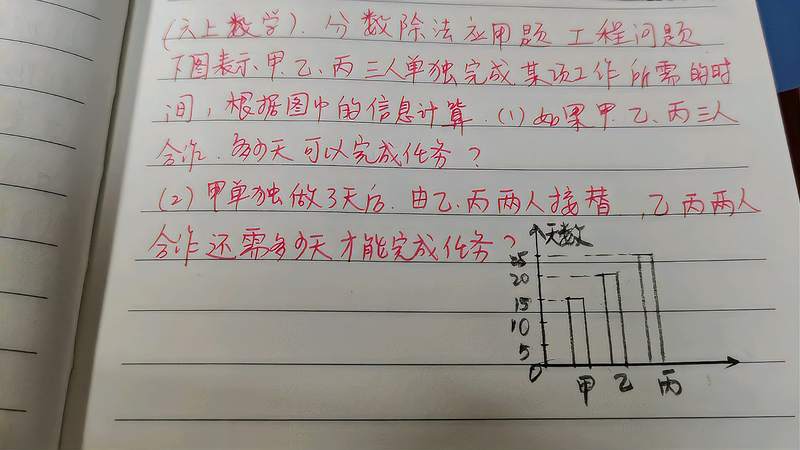 (六上数学). 分数除法应用题 工程问题
下图表示甲.乙、丙三人单独完成某项工作所需的时
间,根据图中的信息计算.(1)如果甲.乙、丙三人
合作.多少天可以完成任务?
(2)甲单独做3天后.由乙.丙两人接替,乙丙两人
合作还需多少天才能完成任务?
天数
25
20
15
10
5
0
甲 乙 丙